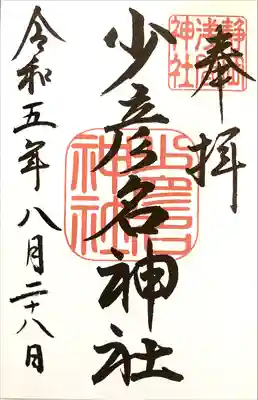 奉拝
静岡
浅間
神社
少彦名神社
令和五年八月二十八日